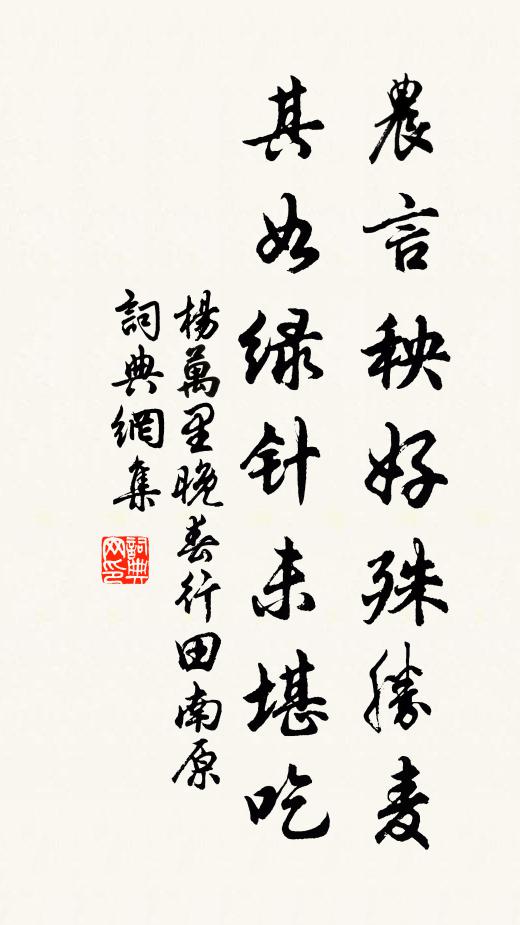 農言秧好殊勝麦
其如绿针未堪吃
楊萬里晚春行田南原
詞典網集
詞典網印